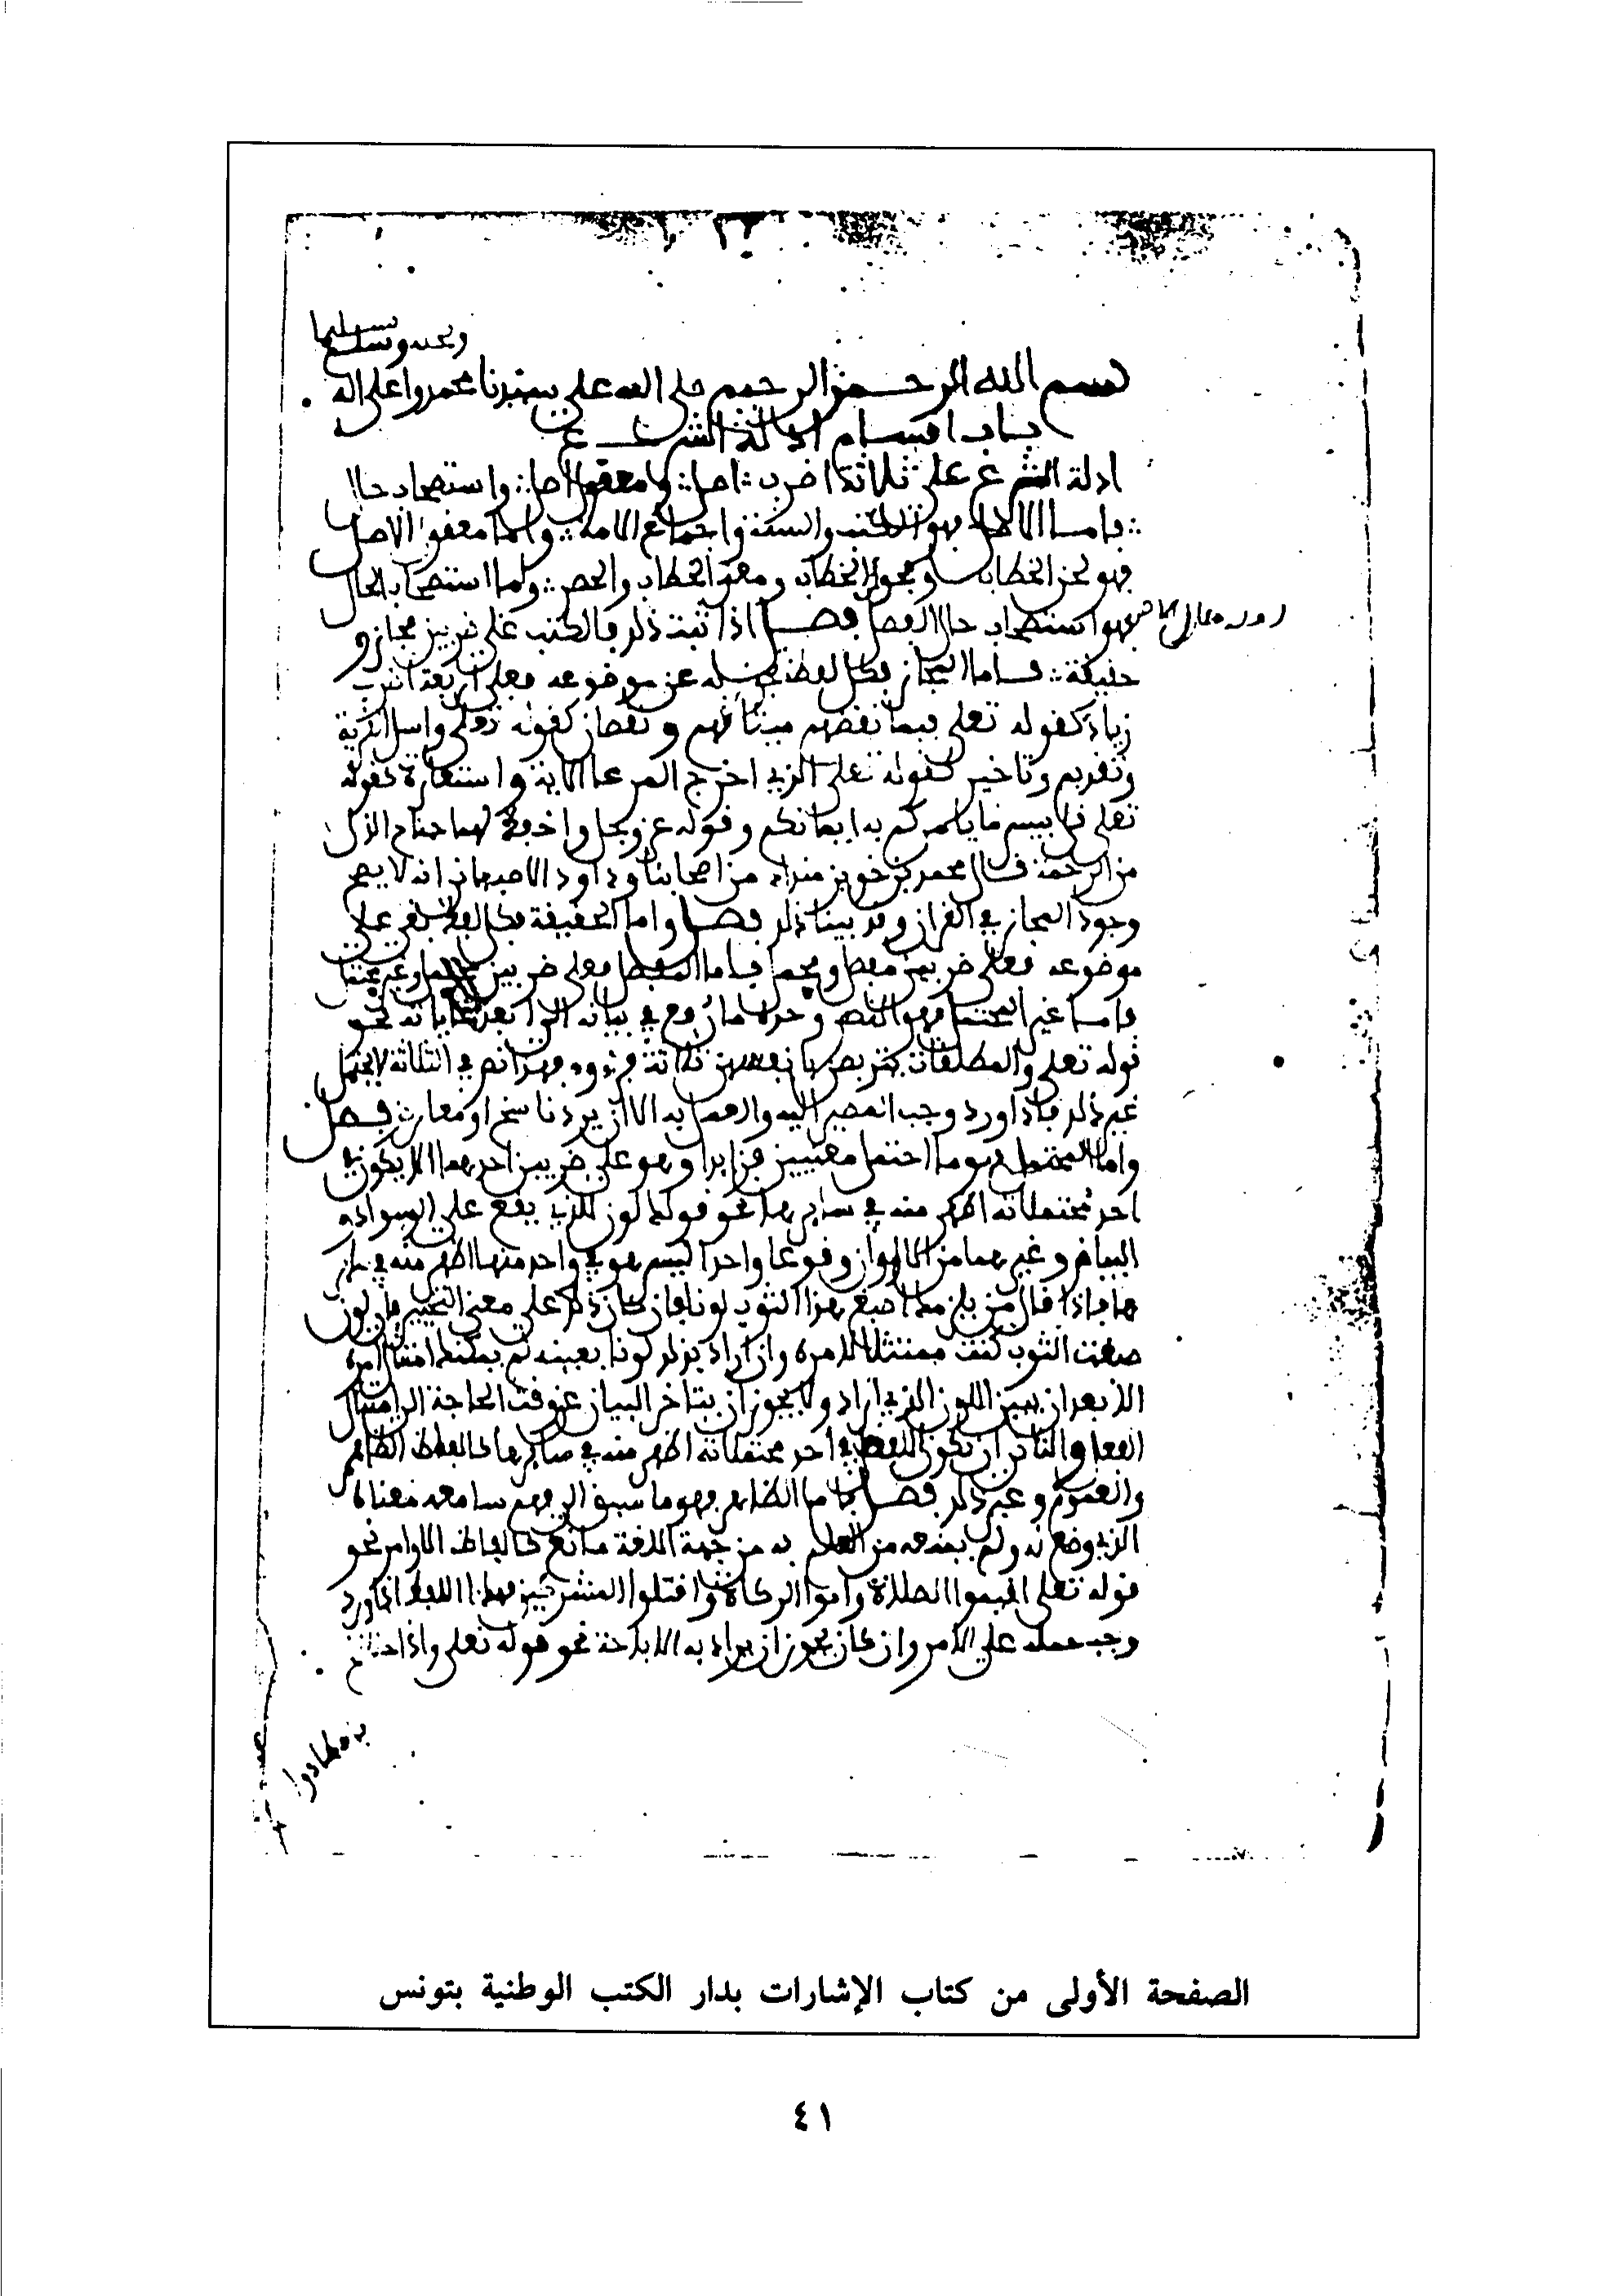 وصحبه وسلم تسليما
بسم الله الرحمن الرحيم صلى الله على سيدنا محمد وعلى اله
باب اقسام ادلة الشرع
ادلة الشرع على ثلاثة اضرب اصل ومعقول اصل واستصحاب حال
فاما الاصل فهو الكتب والسنة واجماع الامة واما معقول الاصل
فهو لحن الخطاب وفحوى الخطاب ومعنى الخطاب والحصر واما استصحاب الحال
فهو استصحاب حال العقل فصل اذا ثبت ذلك فالكتب على ضربين مجاز و
حقيقة فاما المجاز فكل لفظ تجوز به عن موضوعه فعلى اربعة اضرب
زيادة كقوله تعلى فبما نقضهم ميثاقهم ونقصان كقوله تعلى واسل القرية
وتقديم وتاخير كقوله تعلى الذي اخرج المرعى الاية واستعارة كقوله
تعلى قل بيسما يامركم به ايمانكم وقوله عز وجل واخفض لهما جناح الذل
من الرحمة قال محمد بن خويز منداد من اصحابنا وداود الاصبهاني انه لا يصح
وجود المجاز في القران وقد بينا ذلك فصل واما الحقيقة فكل لفظ بقي على
موضوعه فعلى ضربين مفصل ومجمل فاما المفصل فعلى ضربين محتمل وغير محتمل
فاما غير المحتمل فهو النص وحده ما رفع في بيانه الى ابعد غاياته نحو
قوله تعلى والمطلقات يتربصن بانفسهن ثلاثة قروء فهذا نص في الثلاثة لا يحتمل
غير ذلك فاذا ورد وجب المصير اليه والعمل به الا ان يرد ناسخ او معارض فصل
واما المحتمل فهو ما احتمل معنيين فزايدا وهو على ضربين احدهما الا يكون في
احد محتملاته اظهر منه في سايرها نحو قولك لون للذي يقع على السواد و
البياض وغيرهما من الالوان وقوعا واحدا ليس هو في واحد منها اظهر منه في ساير
ها فاذا قال من يلزم امره اصبغ هذا الثوب لونا فان كان ذلك على معنى التخيير فاي لون
صبغت الثوب كنت ممتثلا لامره وان اراد بذلك لونا بعينه لم يمكنك امتثال امره
الا بعد ان يبين اللون الذي اراد ولا يجوز ان يتاخر البيان عن وقت الحاجة الى امتثال
الفعل والثاني ان يكون اللفظ في احد محتملاته اظهر منه في سايرها كالفاظ الظاهر
والعموم وغير ذلك فصل فاما الظاهر فهو ما سبق الى فهم سامعه معناه
الذي وضع له ولم يمنعه من العلم به من جهة اللغة مانع كالفاظ الاوامر نحو
قوله تعلى اقيموا الصلاة واتوا الزكاة واقتلوا المشركين فهذا اللفظ اذا ورد
وجب حمله على الامر وان كان يجوز ان يراد به الاباحة نحو قوله تعلى واذا حللتم
فاصطادوا
الصفحة الأولى من كتاب الإشارات بدار الكتب الوطنية بتونس
٤١